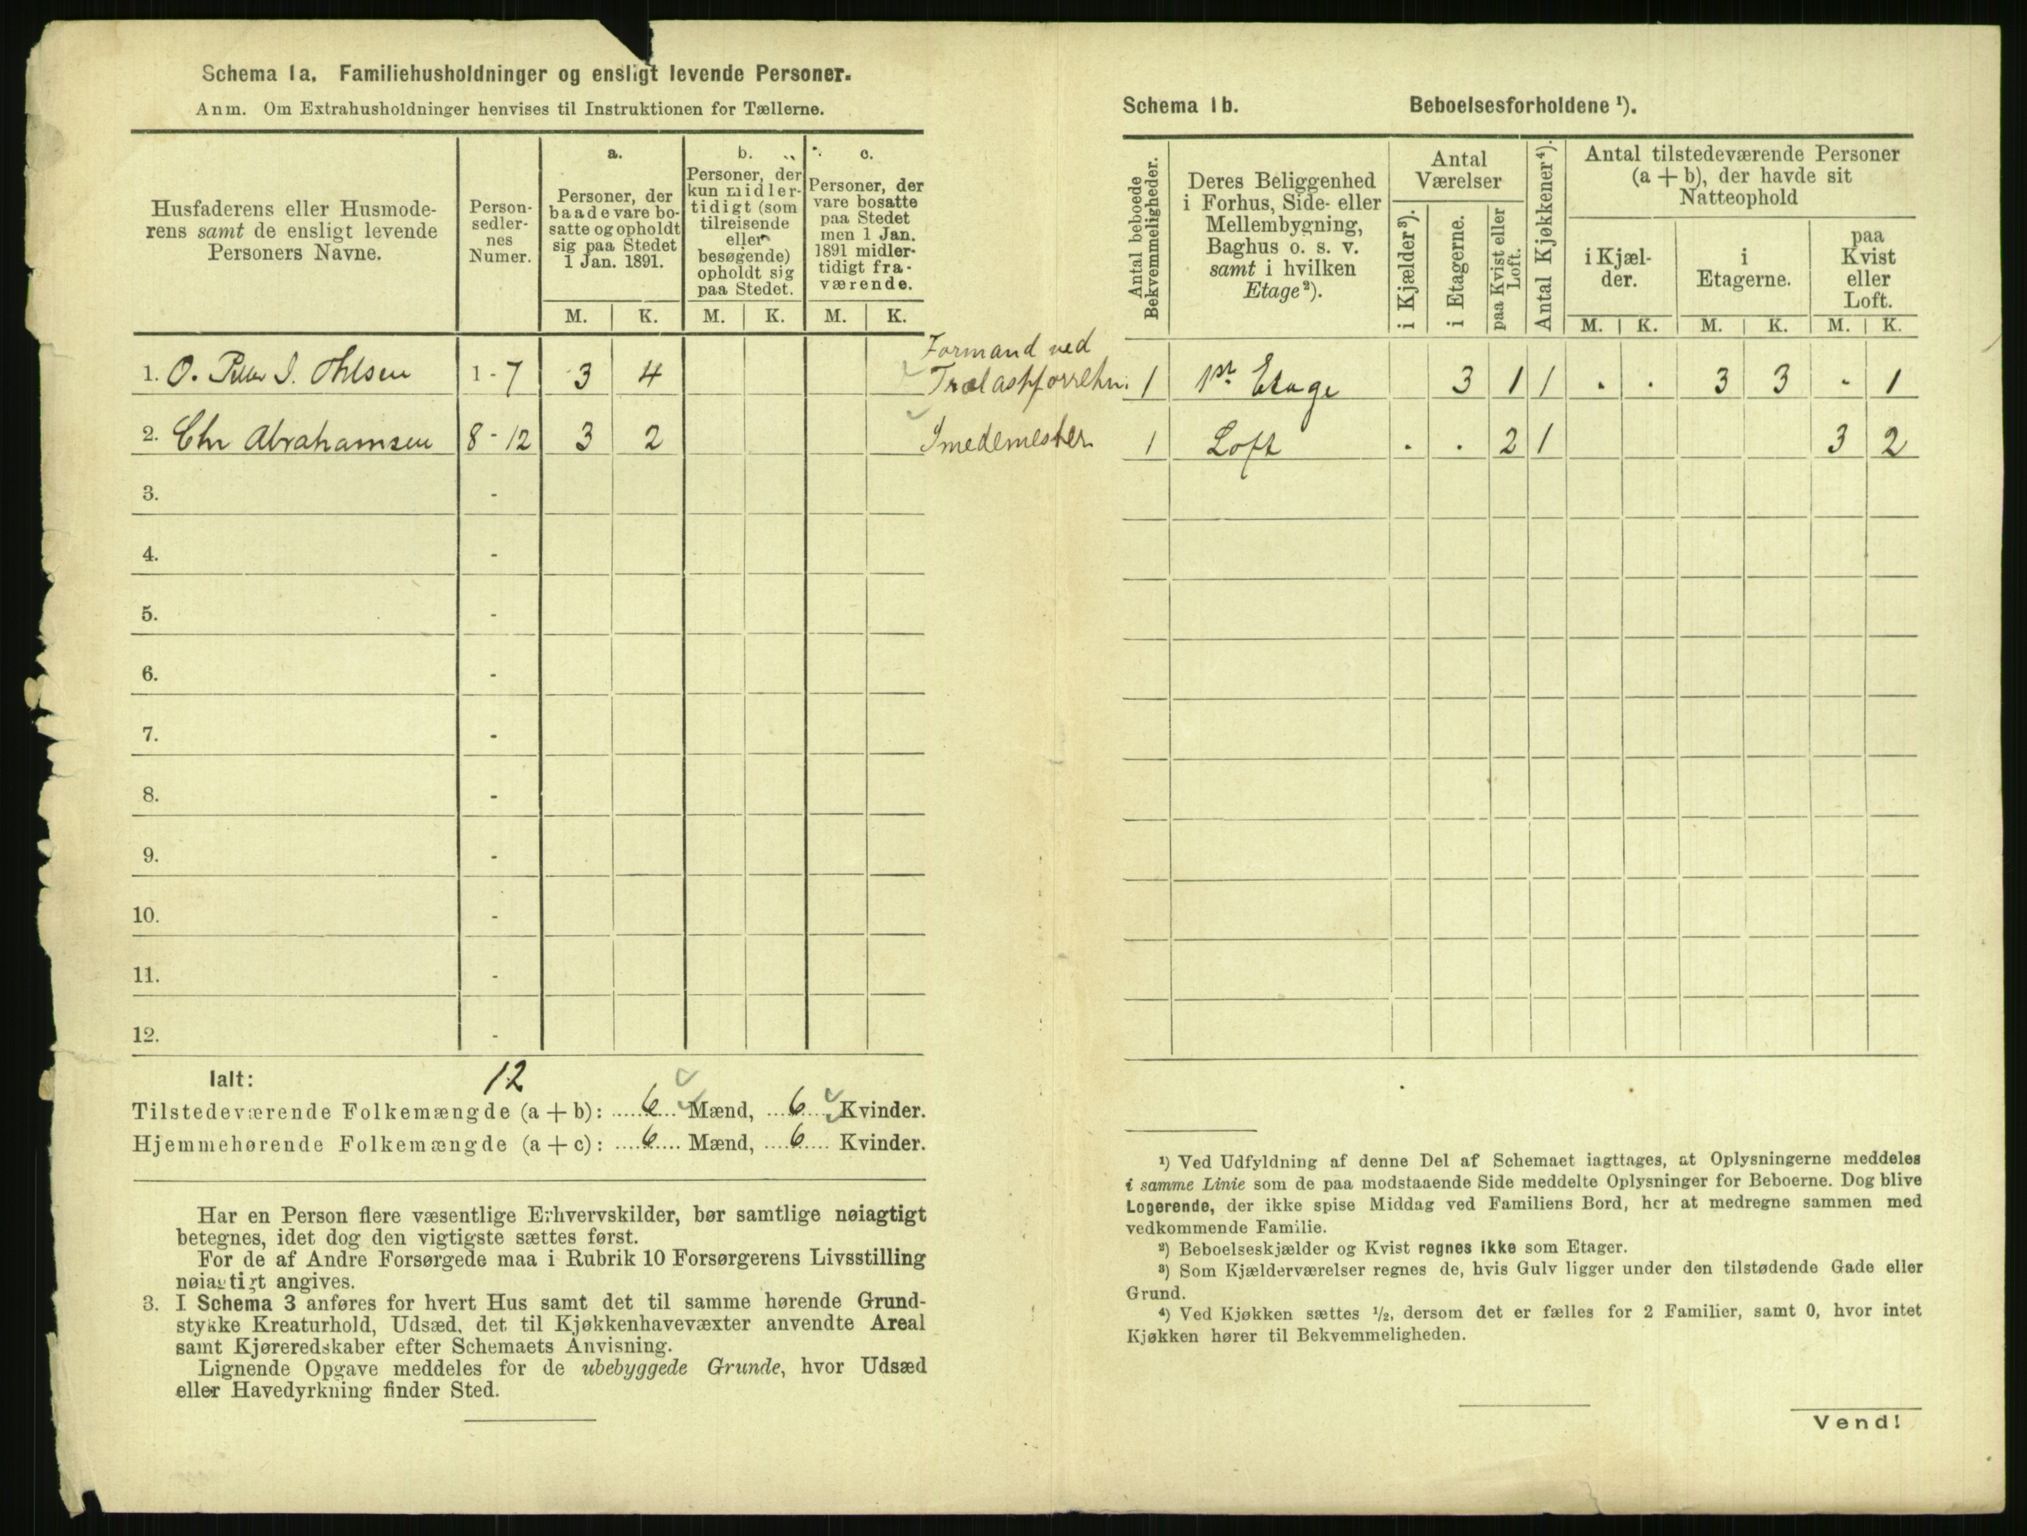 Schema 1a. Familiehusholdninger og ensligt levende Personer.
Anm. Om Extrahusholdninger henvises til Instruktionen for Tællerne.
Husfaderens eller Husmode-
rens samt de ensligt levende
Personers Navne.
Person-
sedler-
nes
Numer.
a.
Personer, der
baade vare bo-
satte og opholdt
sig paa Stedet
1 Jan. 1891.
b.
Personer, der
kun midler-
tidigt (som
tilreisende
eller
besøgende)
opholdt sig
paa Stedet.
c.
Personer, der
vare bosatte
paa Stedet
men 1 Jan.
1891 midler-
tidigt fra-
værende.
M. K. M. K. M. K.
1. O. Peter J. Ohlsen 1-7 3 4
2. Chr Abrahamsen 8-12 3 2
3. -
4. -
5. -
6. -
7. -
8. -
9. -
10. -
11. -
12. -
Ialt: 12
Tilstedeværende Folkemængde (a + b): 6 Mænd, 6 Kvinder.
Hjemmehørende Folkemængde (a + c): 6 Mænd, 6 Kvinder.
Har en Person flere væsentlige Erhvervskilder, bør samtlige nøiagtigt
betegnes, idet dog den vigtigste sættes først.
For de af Andre Forsørgede maa i Rubrik 10 Forsørgerens Livsstilling
nøiagtigt angives.
3. I Schema 3 anføres for hvert Hus samt det til samme hørende Grund-
stykke Kreaturhold, Udsæd, det til Kjøkkenhavevæxter anvendte Areal
samt Kjøreredskaber efter Schemaets Anvisning.
Lignende Opgave meddeles for de ubebyggede Grunde, hvor Udsæd
eller Havedyrkning finder Sted.
Schema 1b. Beboelsesforholdene ¹).
Antal beboede
Bekvemmeligheder.
Deres Beliggenhed
i Forhus, Side- eller
Mellembygning,
Baghus o. s. v.
samt i hvilken
Etage²).
Antal
Værelser
i Kjælder³).
i Etagerne.
paa Kvist eller
Loft.
Antal Kjøkkener⁴).
Antal tilstedeværende Personer
(a + b), der havde sit
Natteophold
i Kjæl-
der.
i
Etagerne.
paa
Kvist
eller
Loft.
M. K. M. K. M. K.
Formand ved
Trælastforretn. 1 1ste Etage 3 1 1 . . 3 3 - 1
Smedemester 1 Loft . . 2 1 3 2
¹) Ved Udfyldning af denne Del af Schemaet iagttages, at Oplysningerne meddeles
i samme Linie som de paa modstaaende Side meddelte Oplysninger for Beboerne. Dog blive
Logerende, der ikke spise Middag ved Familiens Bord, her at medregne sammen med
vedkommende Familie.
²) Beboelseskjælder og Kvist regnes ikke som Etager.
³) Som Kjælderværelser regnes de, hvis Gulv ligger under den tilstødende Gade eller
Grund.
⁴) Ved Kjøkken sættes ½, dersom det er fælles for 2 Familier, samt 0, hvor intet
Kjøkken hører til Bekvemmeligheden.
Vend!